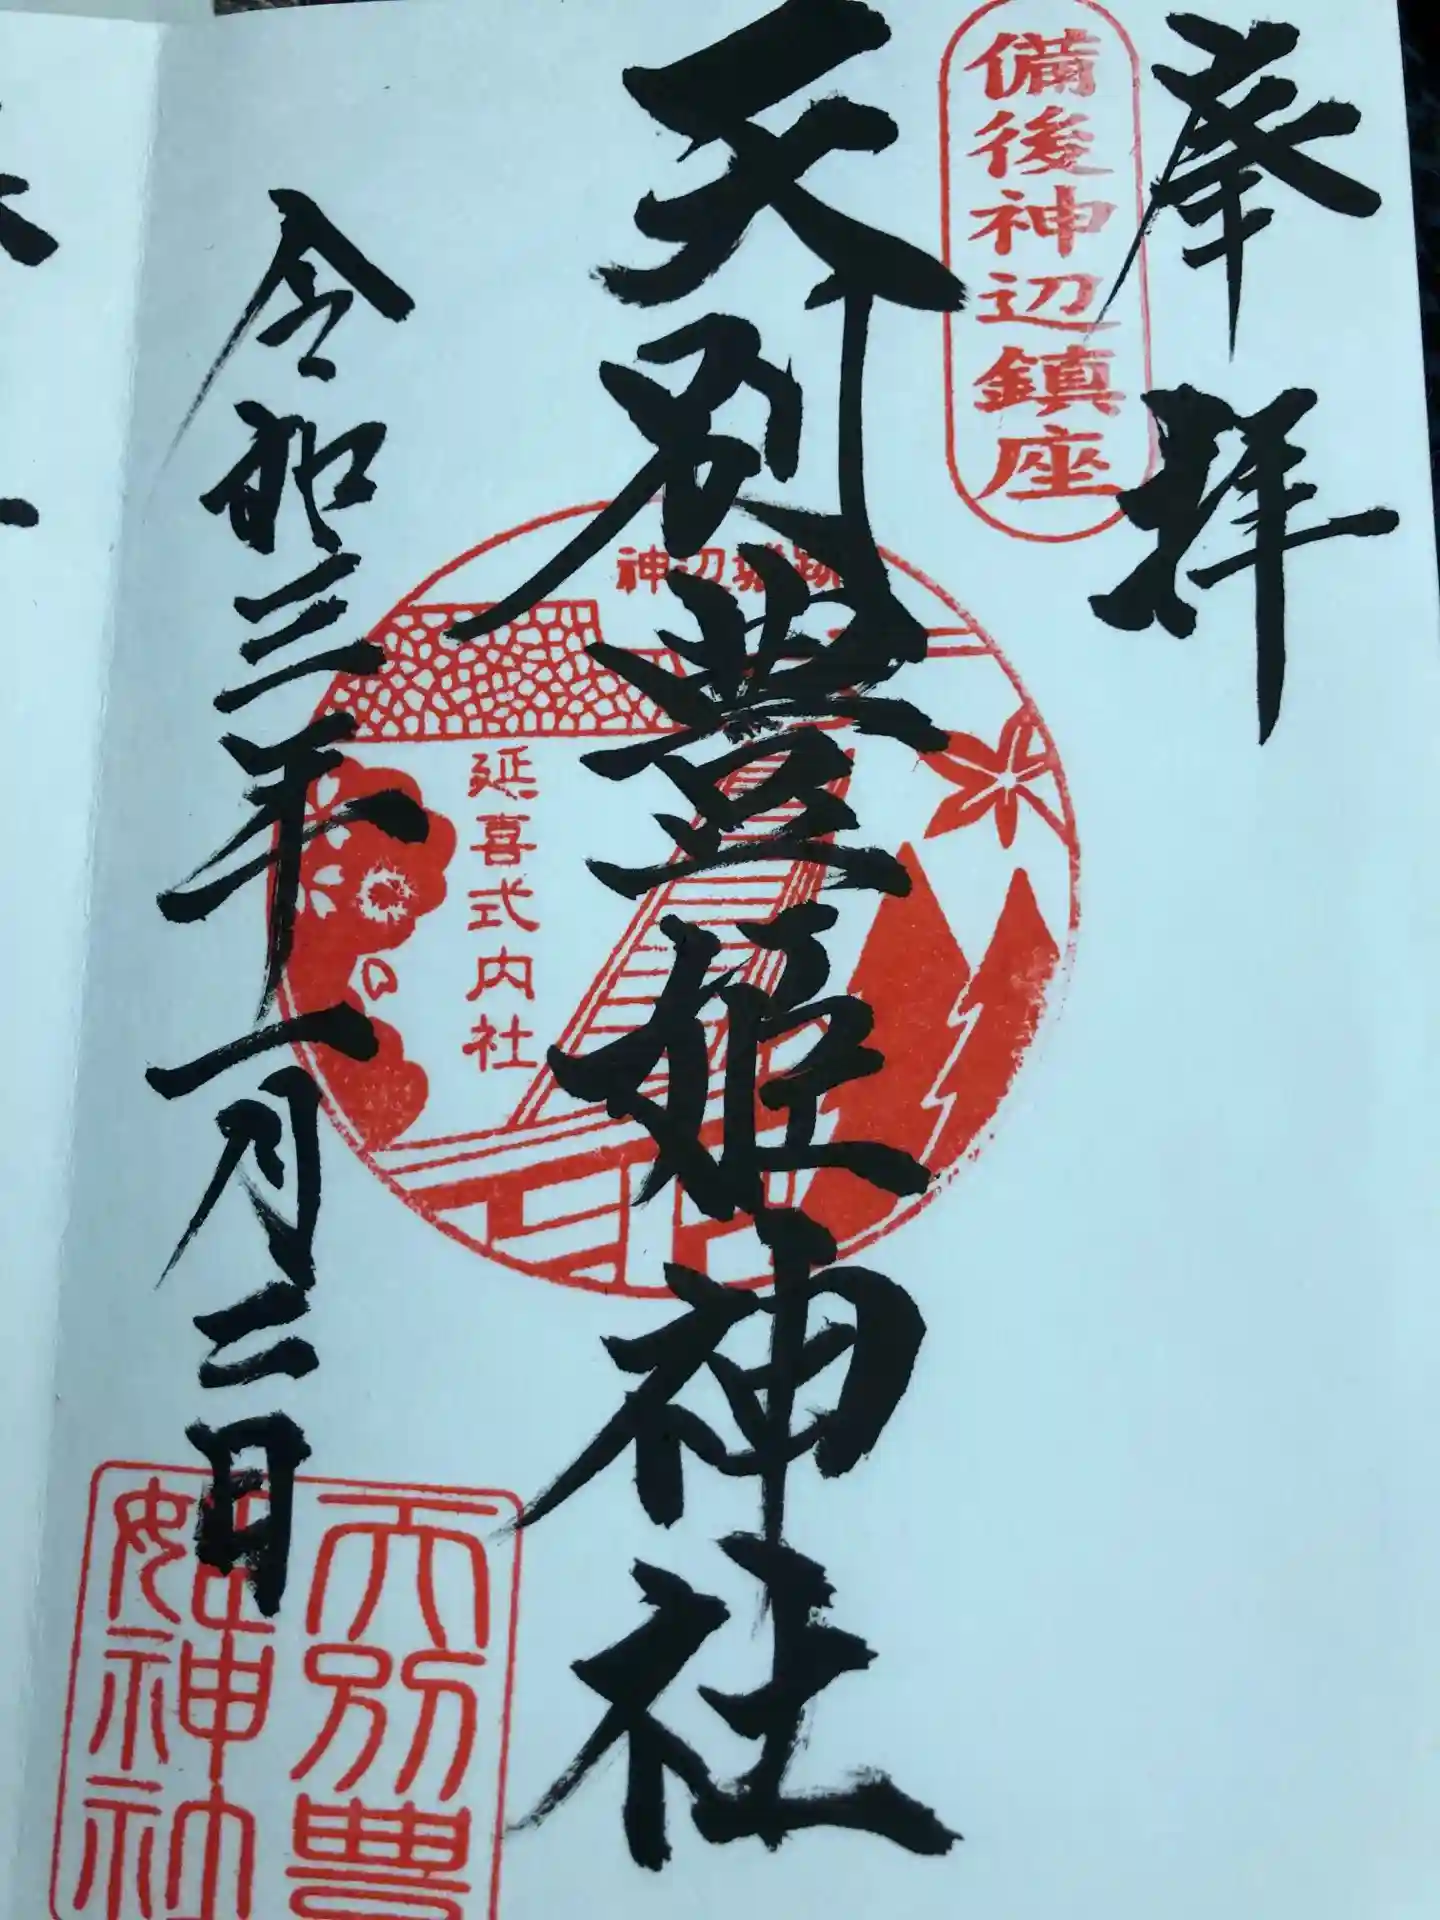 奉拝
備後神辺鎮座
天別豊姫神社
神辺城跡
延喜式内社
令和三年一月二日
天別豊
姫神社